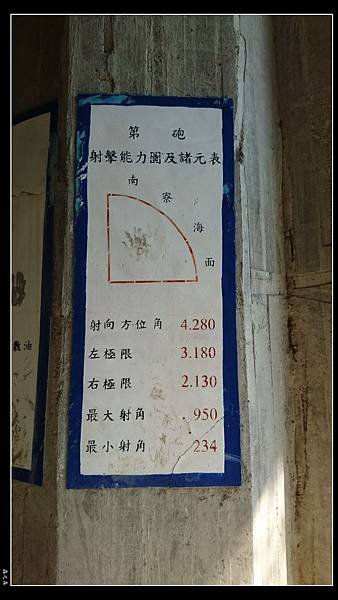 第 砲
射擊能力圖及諸元表
南
寮
海
面
射向方位角 4.280
左極限 3.180
右極限 2.130
最大射角 950
最小射角 234
油